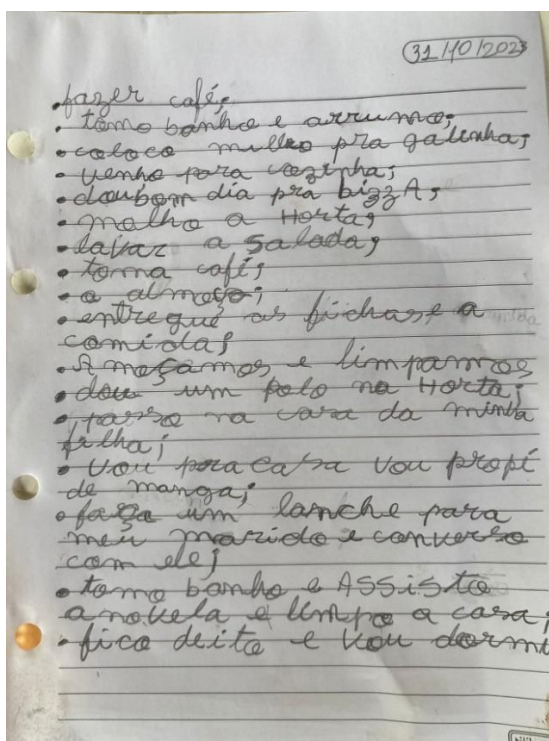 31/10/2023
• fazer café;
• tomo banho e arrumo;
• coloco milho pra galinha;
• venho para cozinha;
• doubom dia pra bizzA;
• molho a Horta;
• lavar a salada;
• toma café;
• o almoço;
• entregue as fichas e a
comida;
• Amoçamos e limpamos
• dou um polo na Horta;
• passo na casa da minha
filha;
• vou pra casa vou propé
de manga;
• faço um lanche para
meu marido e converso
com ele;
• tomo banho e ASSisto
a novela e limpo a casa;
• fico deito e vou dormi